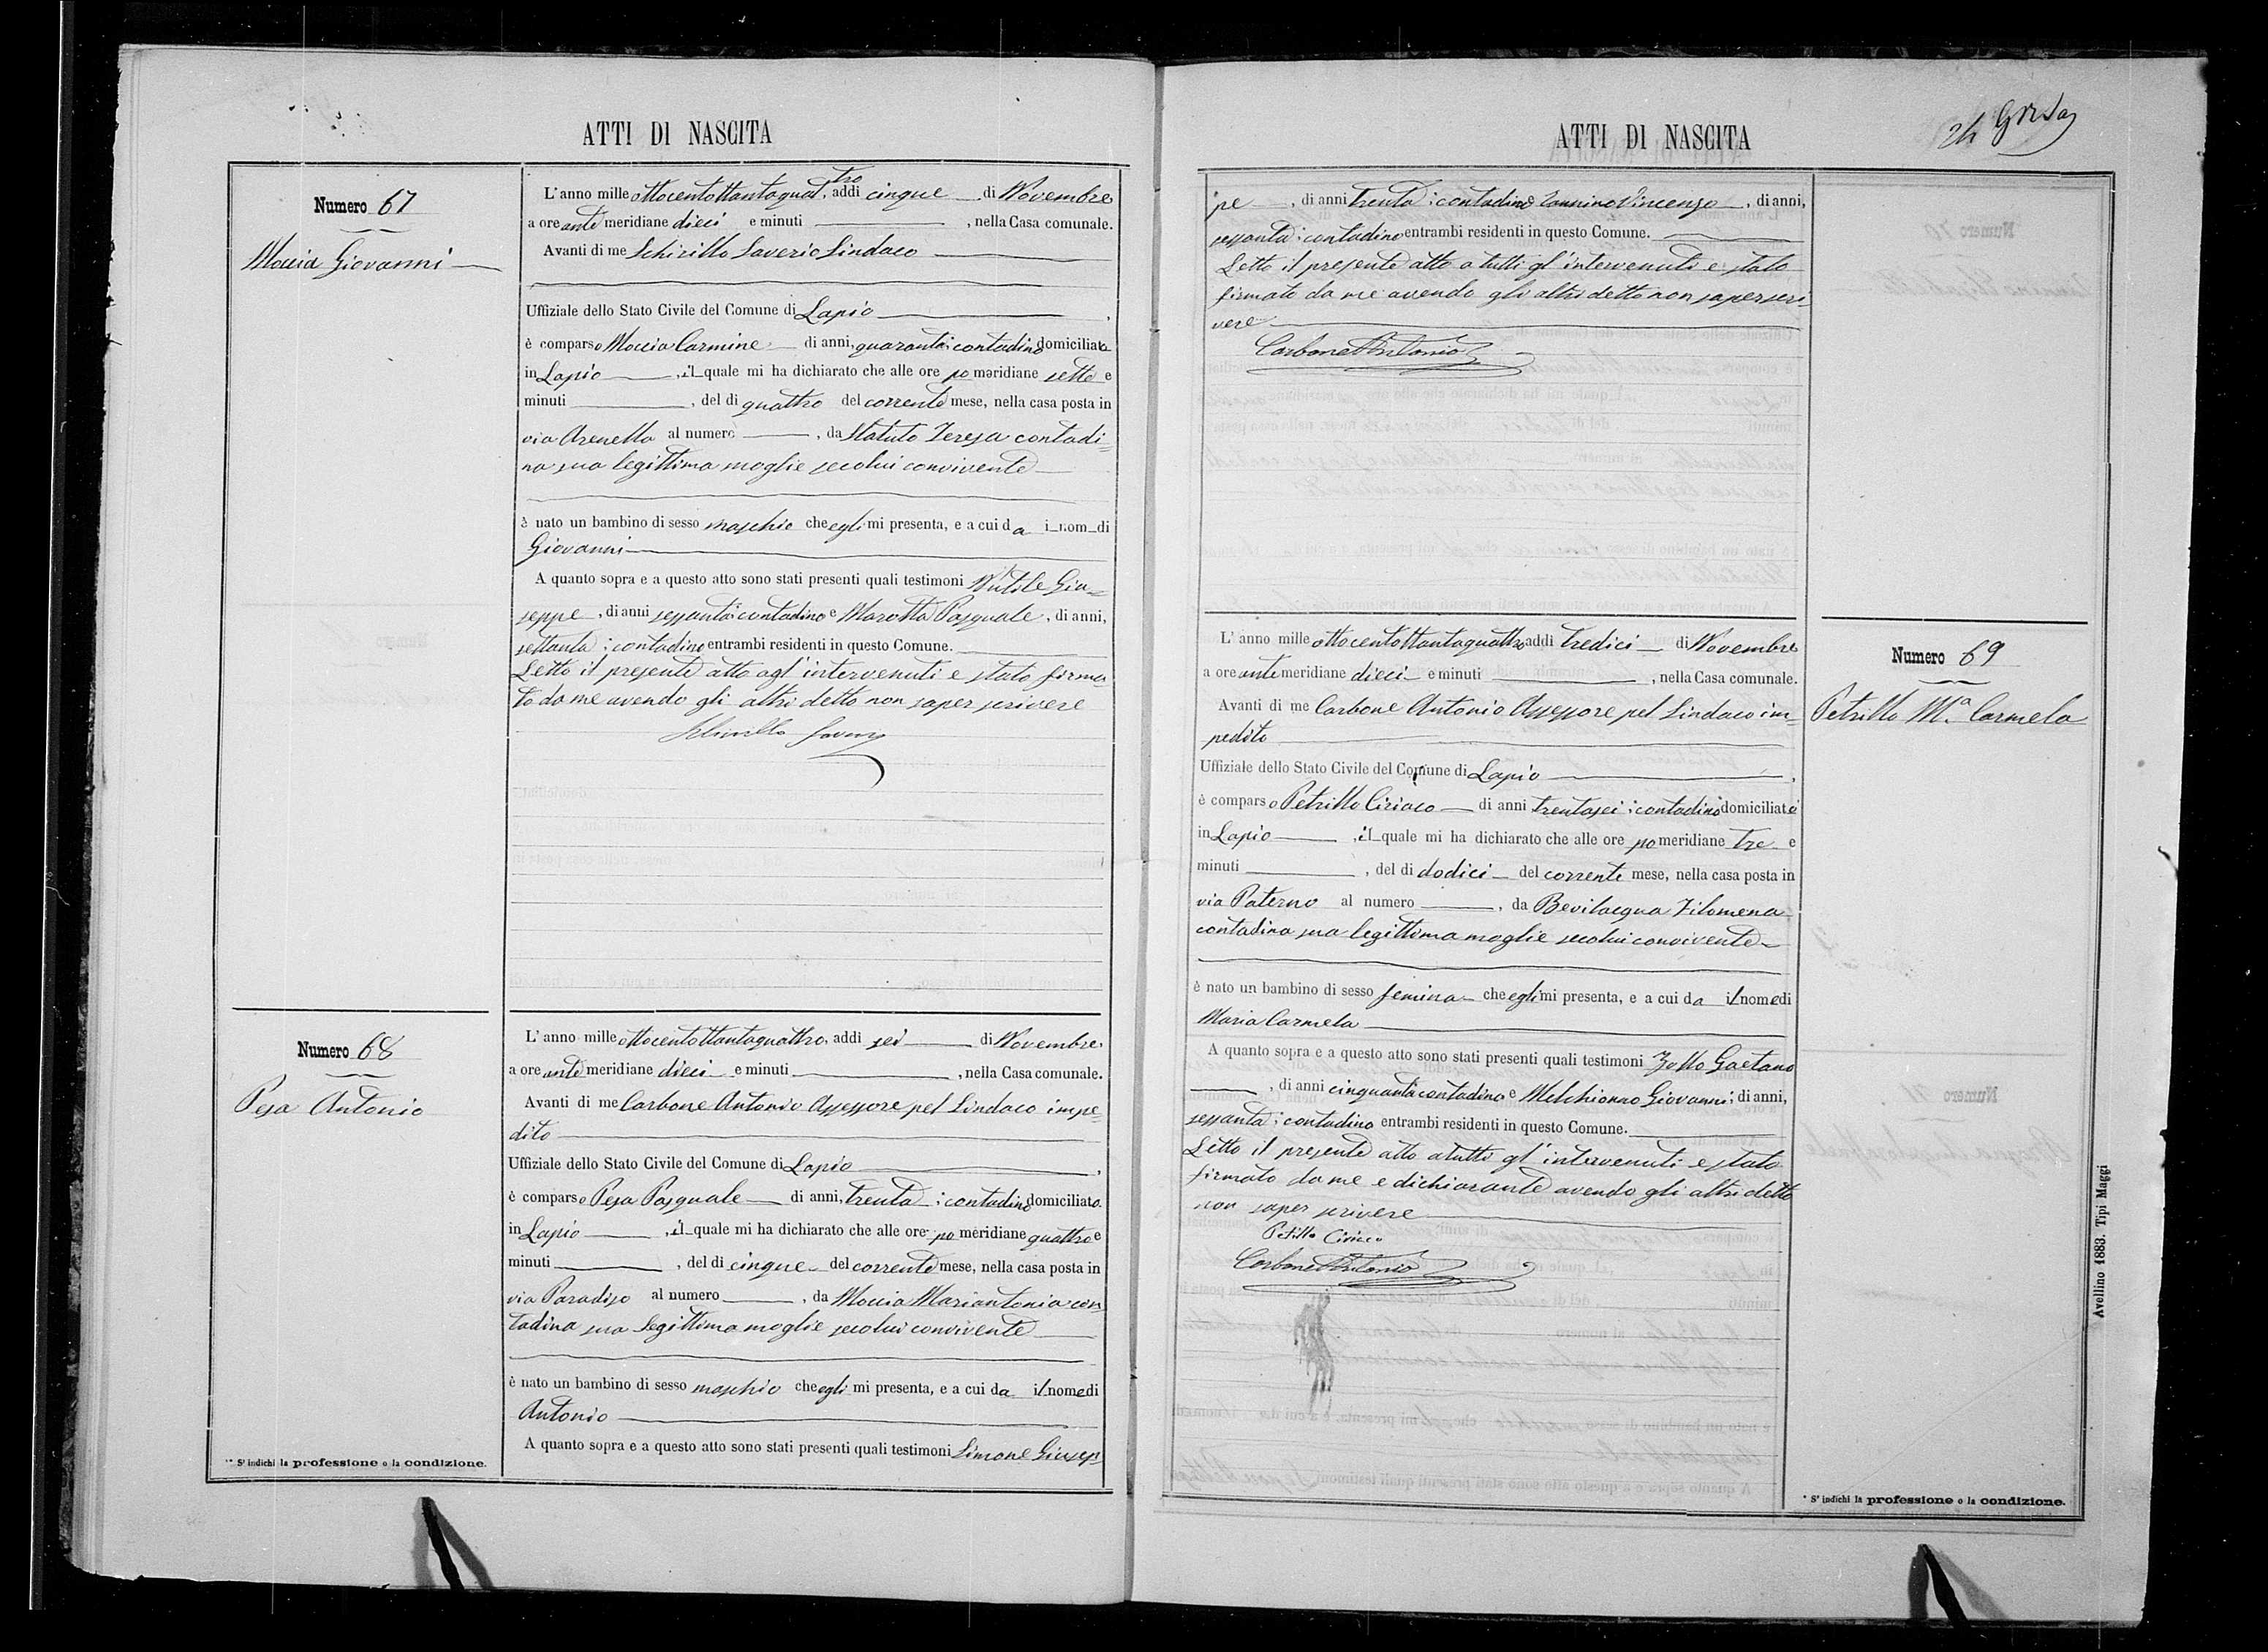 ATTI DI NASCITA
Numero 67
Moccia Giovanni
L'anno mille ottocentottantaquattro, addi cinque di Novembre
a ore ante meridiane dieci e minuti , nella Casa comunale.
Avanti di me Schirillo Saverio Sindaco
Uffiziale dello Stato Civile del Comune di Lapio ,
è comparso Moccia Carmine di anni, quaranta; contadino domiciliato
in Lapio , il quale mi ha dichiarato che alle ore po meridiane sette e
minuti , del di quattro del corrente mese, nella casa posta in
via Arenella al numero , da Statuto Teresa contadi=
na sua legittima moglie secolui convivente
è nato un bambino di sesso maschio che egli mi presenta, e a cui da i nom di
Giovanni
A quanto sopra e a questo atto sono stati presenti quali testimoni Nutile Giu=
seppe , di anni sessanta contadino e Marotta Pasquale , di anni,
settanta ; contadino entrambi residenti in questo Comune.
Letto il presente atto agl' intervenuti e stato firma
to da me avendo gli altri detto non saper scrivere
Schirillo Saverio
Numero 68
Pesa Antonio
L'anno mille ottocentottantaquattro, addi sei di Novembre
a ore ante meridiane dieci e minuti , nella Casa comunale.
Avanti di me Carbone Antonio Assessore pel Sindaco impe=
dito
Uffiziale dello Stato Civile del Comune di Lapio ,
è comparso Pesa Pasquale di anni, trenta ; contadino domiciliato
in Lapio , il quale mi ha dichiarato che alle ore po meridiane quattro e
minuti , del di cinque del corrente mese, nella casa posta in
via Paradiso al numero , da Moccia Mariantonia con
tadina sua legittima moglie secolui convivente
è nato un bambino di sesso maschio che egli mi presenta, e a cui da il nome di
Antonio
A quanto sopra e a questo atto sono stati presenti quali testimoni Simone Giusep
* S'indichi la professione o la condizione.
ATTI DI NASCITA
24
pe , di anni trenta ; contadino e Vincenzo , di anni,
sessanta ; contadino entrambi residenti in questo Comune.
Letto il presente atto a tutti gl' intervenuti e stato
firmato da me avendo gli altri detto non saper scri=
vere
Carbone Antonio
Numero 69
Petrillo M.ª Carmela
L'anno mille ottocentottantaquattro addi tredici di Novembre
a ore ante meridiane dieci e minuti , nella Casa comunale.
Avanti di me Carbone Antonio Assessore pel Sindaco im=
pedito
Uffiziale dello Stato Civile del Comune di Lapio ,
è comparso Petrillo Ciriaco di anni trentasei ; contadino domiciliato
in Lapio , il quale mi ha dichiarato che alle ore po meridiane tre e
minuti , del di dodici del corrente mese, nella casa posta in
via Paterno al numero , da Bevilacqua Filomena
contadina sua legittima moglie secolui convivente
è nato un bambino di sesso femina che egli mi presenta, e a cui da il nome di
Maria Carmela
A quanto sopra e a questo atto sono stati presenti quali testimoni Zollo Gaetano
, di anni cinquanta contadino e Melchionno Giovanni ; di anni,
sessanta ; contadino entrambi residenti in questo Comune.
Letto il presente atto a tutti gl' intervenuti e stato
firmato da me e dichiarante avendo gli altri detto
non saper scrivere
Petrillo Ciriaco
Carbone Antonio
* S'indichi la professione o la condizione.
Avellino 1883. Tipi Maggi